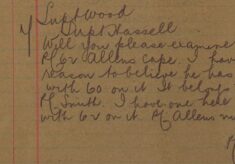 Supt Wood
Supt Hassell.
Will you please examine
PC 62 Allens Cape. I have
reason to believe he has
with 60 on it. It belongs
PC Smith. I have one here
with 62 on it. PC Allens